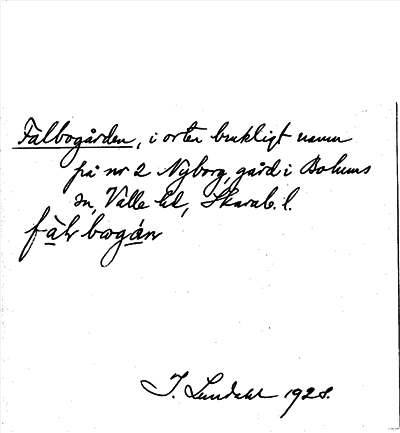 Fälbogården, i orten brukligt namn
på nr 2 Nyborg, gård i Bolums
sn, Valle hd, Skarab. l.
fä̲lv bωgá̲n
I. Lundahl 1928.